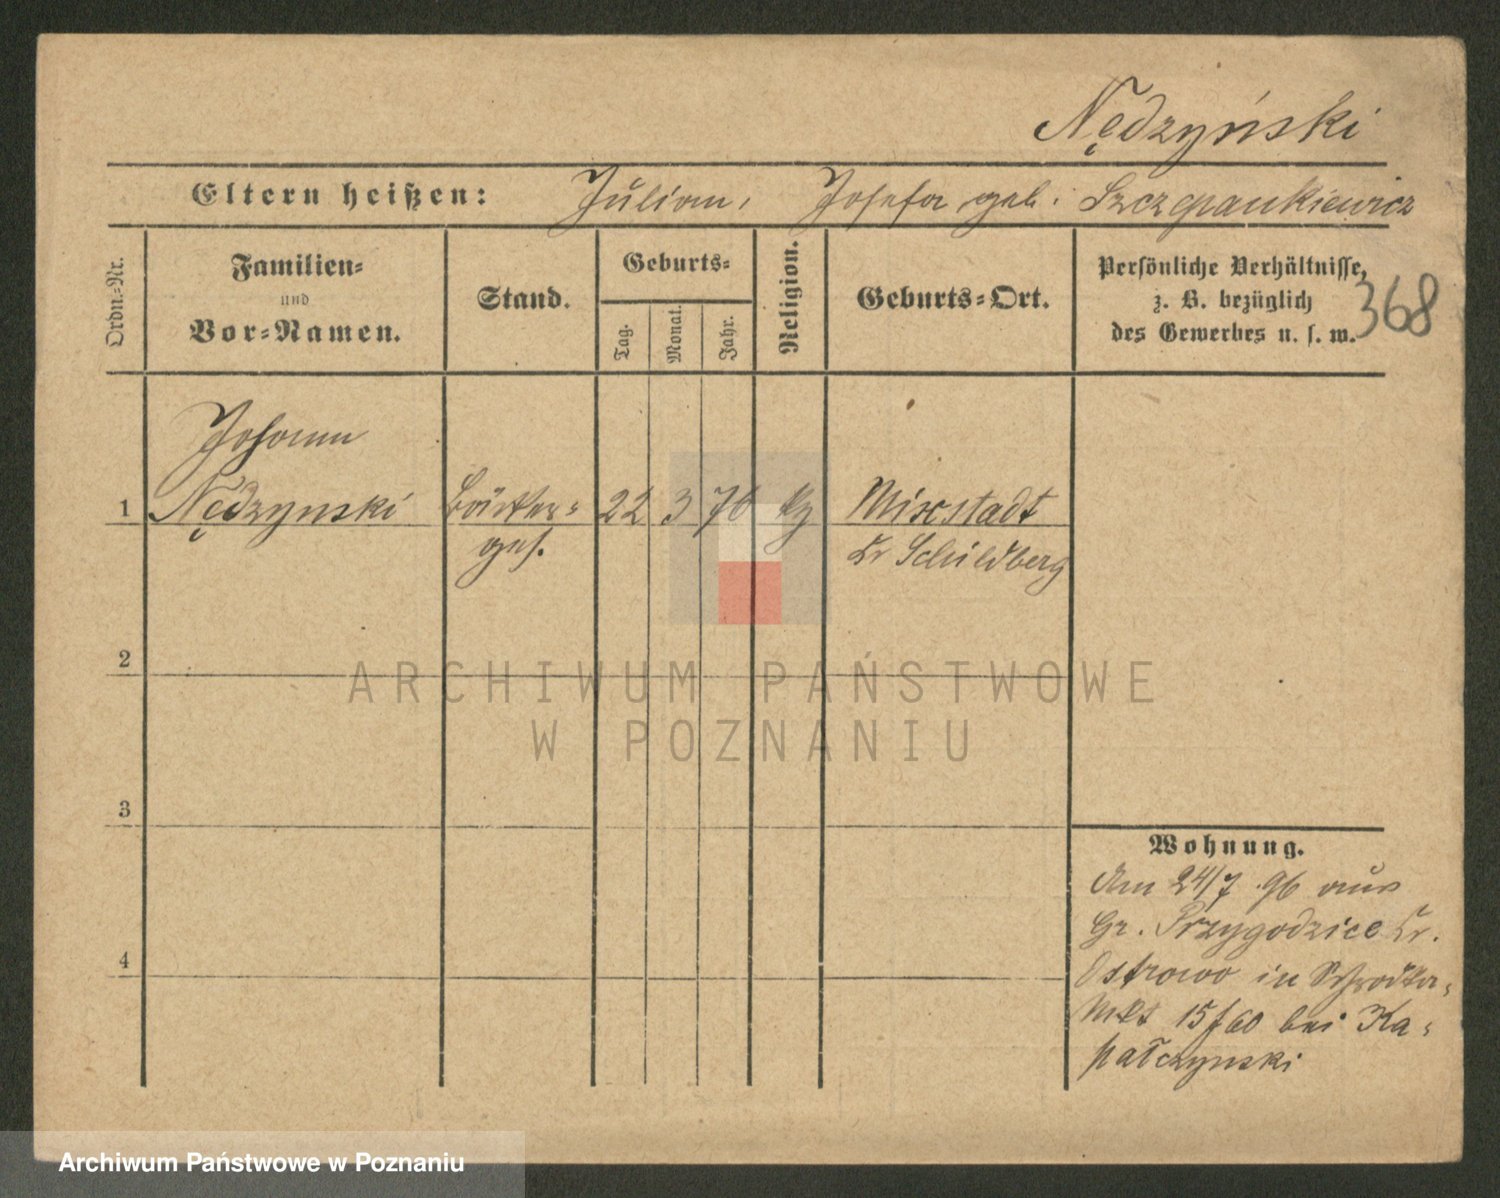 Nędzyński
Eltern heißen: Julian, Josefa geb. Szczepankiewicz
Ordn.-Nr.
Familien-
und
Vor-Namen.
Stand.
Geburts-
Tag.
Monat.
Jahr.
Religion.
Geburts-Ort.
Persönliche Verhältnisse,
z. B. bezüglich
des Gewerbes u. s. w.
368
Johann
1 Nędzynski Bäcker- 22 3 76 Mixstadt
ges. Kr Schildberg
2
3
4
Wohnung.
Am 24/7 96 aus
Gr. Przygodzice Kr.
Ostrowo in Schrodka-
Mkt 15 f 60 bei Ka-
pałczynski
ARCHIWUM PAŃSTWOWE
W POZNANIU
Archiwum Państwowe w Poznaniu